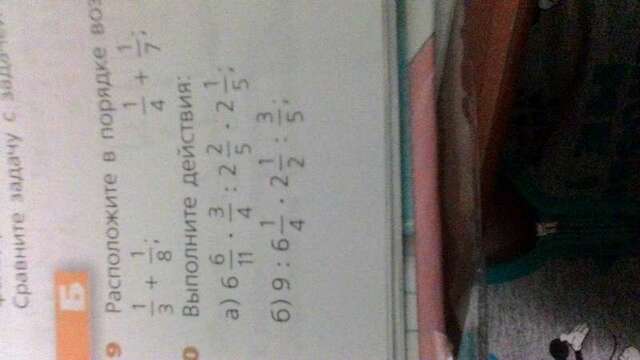 Сравните задачу с задачей
Б
9 Расположите в порядке воз
1/3 + 1/8; 1/4 + 1/7;
0 Выполните действия:
а) 6 6/11 · 3/4 : 2 2/5 · 2 1/5;
б) 9 : 6 1/4 · 2 1/2 : 3/5;